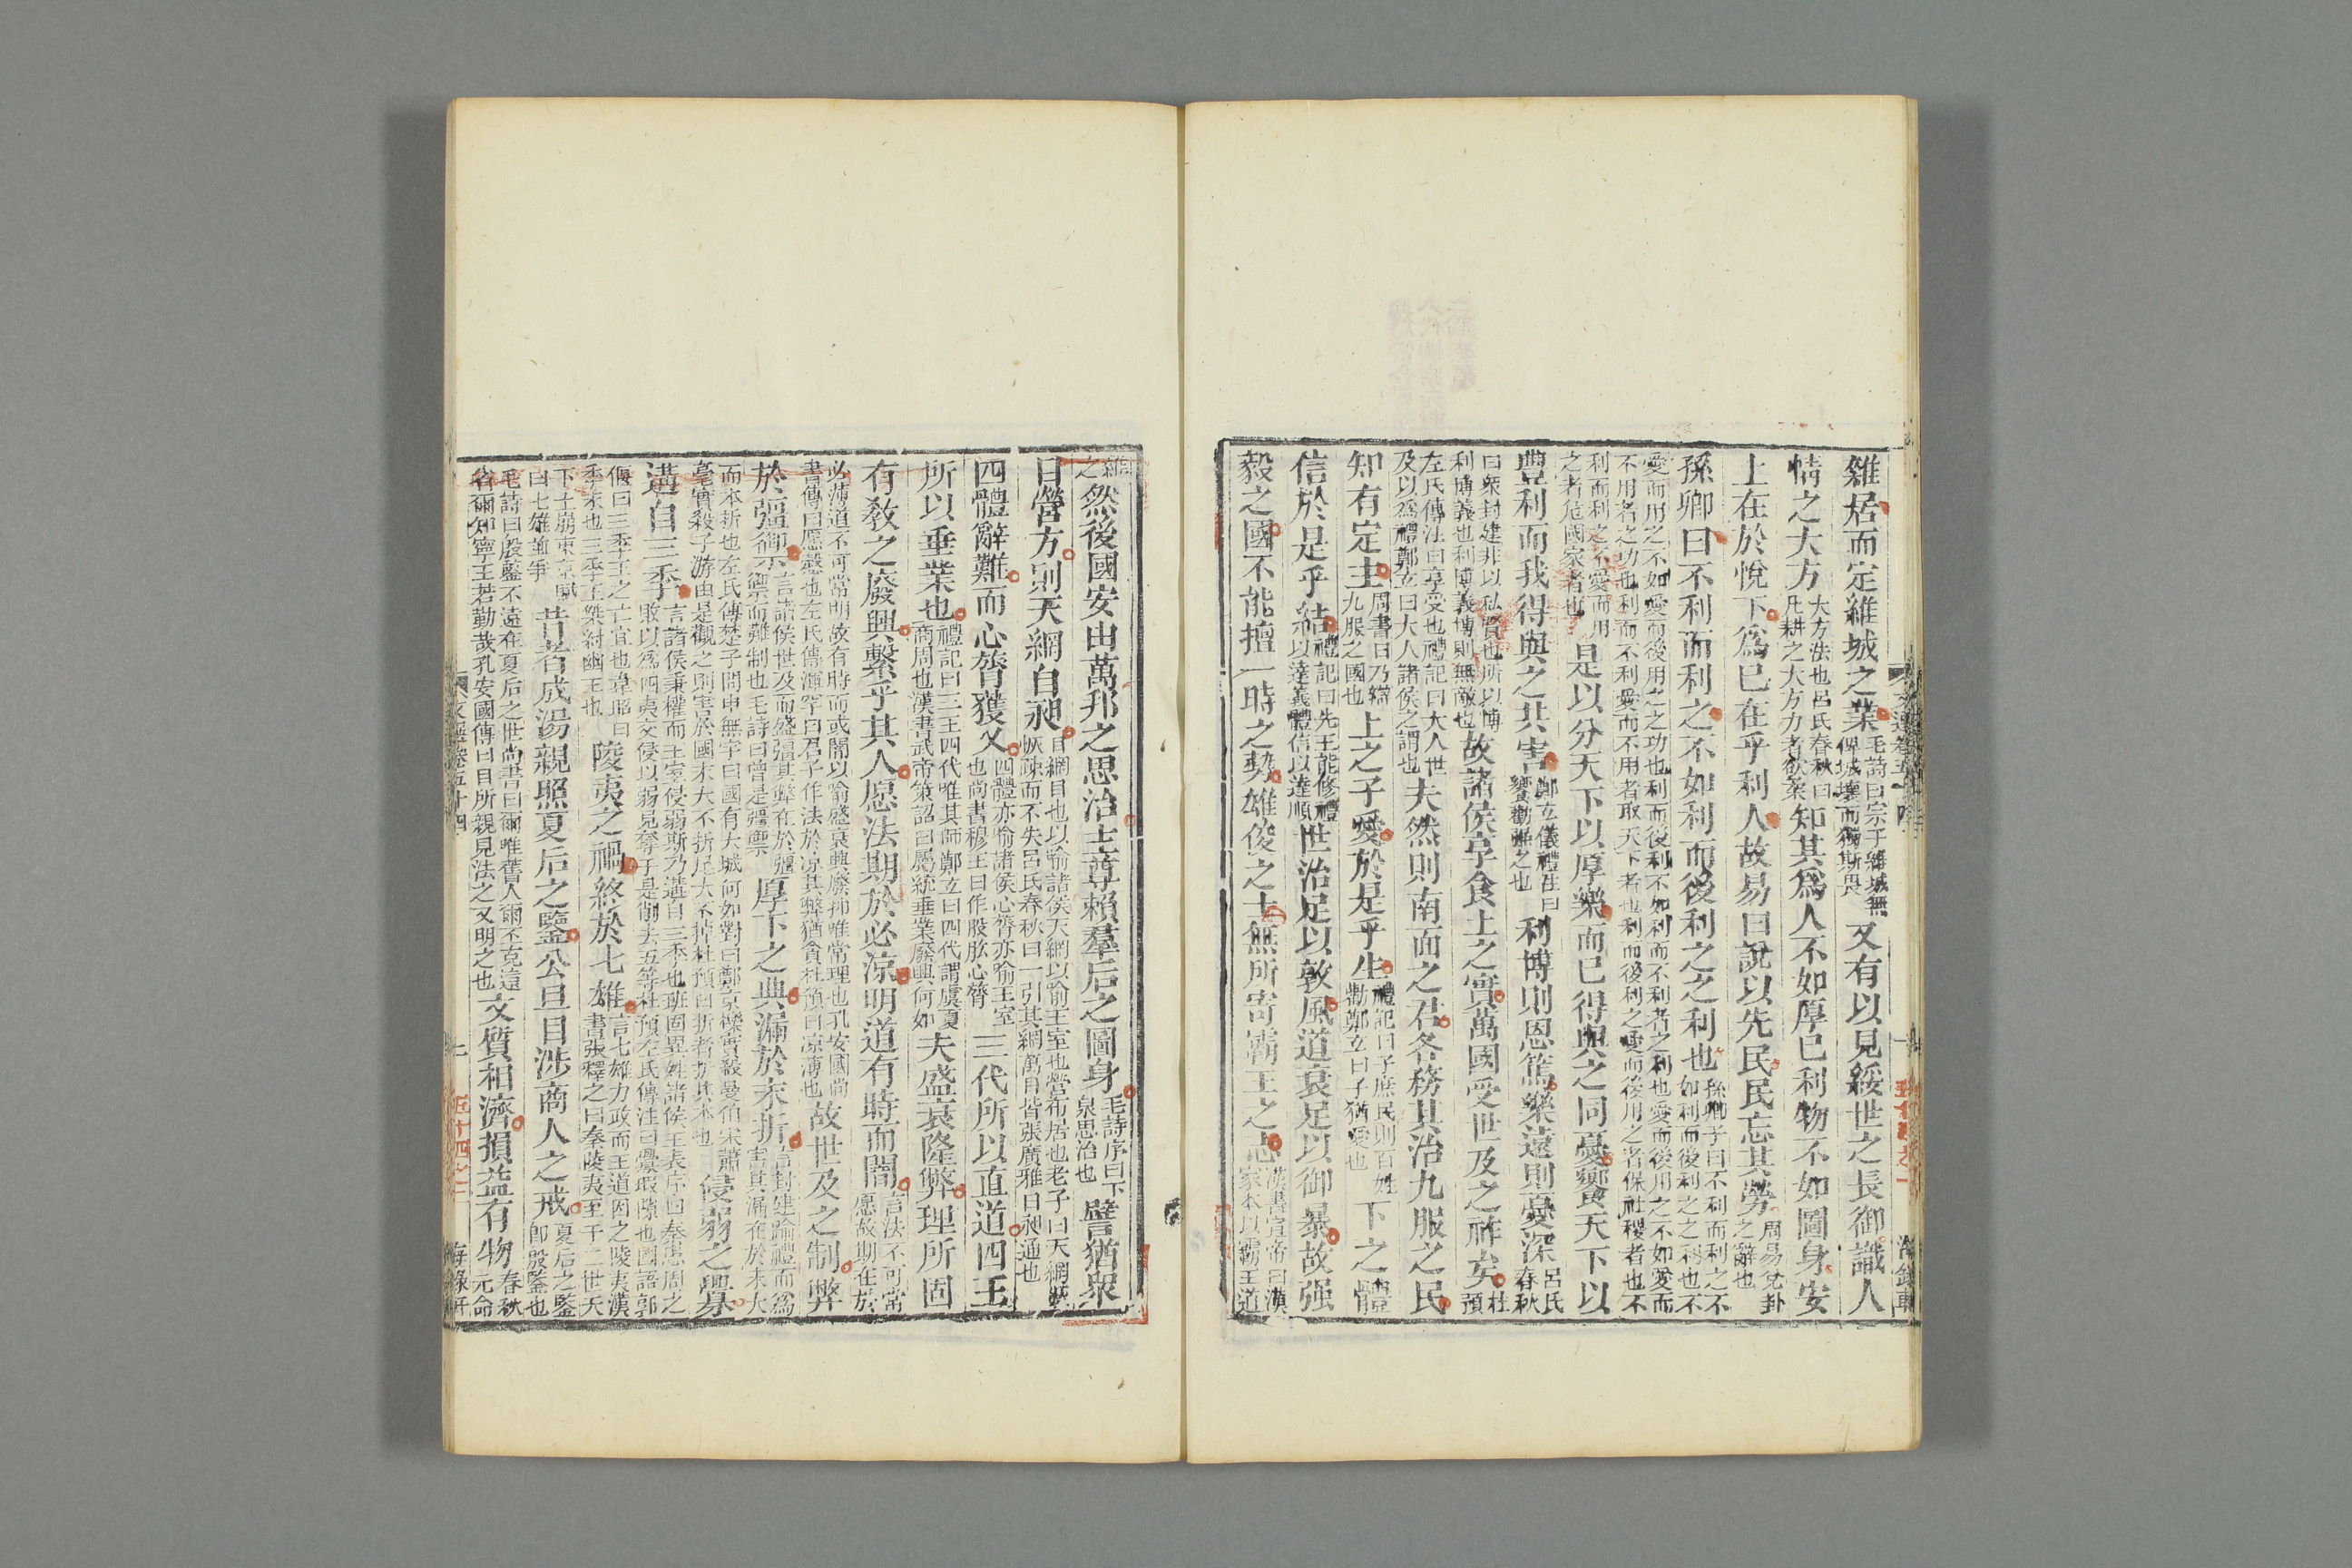 雖居而定維城之業毛詩曰宗子維城無俾城壞而獨斯畏又有以見綏世之長御識人
情之大方大方法也呂氏春秋曰凡耕之大方力者欲柔知其為人不如厚己利物不如圖身安
上在於悅下為己在乎利人故易曰說以先民民忘其勞周易兌卦之辭也
孫卿曰不利而利之不如利而後利之之利也孫卿子曰不利而利之不如利而後利之之利也不
愛而用之不如愛而後用之之功也利而後利不如利而不利者之利也愛而後用之不如愛而
不用者之功也利而不利愛而不用者取天下者也利而後利之愛而後用之者保社稷者也不
利而利之不愛而用之者危國家者也是以分天下以厚樂而己得與之同憂饗天下以
豐利而我得與之共害鄭玄儀禮注曰饗勸強之也利博則恩篤樂遠則憂深呂氏春秋
曰衆封建非以私賢也所以博利博義也利博義博則無敵也故諸侯享食土之實萬國受世及之祚矣杜預
左氏傳注曰享受也禮記曰大人世及以為禮鄭玄曰大人諸侯之謂也夫然則南面之君各務其治九服之民
知有定主周書曰乃辯九服之國也上之子愛於是乎生禮記曰子庶民則百姓勸鄭玄曰子猶愛也下之體
信於是乎結禮記曰先王能修禮以達義體信以達順世治足以敦風道衰足以御暴故强
毅之國不能擅一時之勢雄俊之士無所寄霸王之志漢書宣帝曰漢家本以霸王道
雜之然後國安由萬邦之思治主尊賴羣后之圖身毛詩序曰下泉思治也譬猶衆
目營方則天網自昶目網目也以喻諸侯天網以喻王室也營布居也老子曰天網恢恢疎而不失呂氏春秋曰一引其綱萬目皆張廣雅曰昶通也
四體辭難而心膂獲乂四體亦喻諸侯心膂亦喻王室也尚書穆王曰作股肱心膂三代所以直道四王
所以垂業也禮記曰三王四代唯其師鄭玄曰四代謂虞夏商周也漢書武帝策詔曰屬統垂業廢興何如夫盛衰隆弊理所固
有教之廢興繫乎其人愿法期於必涼明道有時而闇言法不可常愿故期在於
必薄道不可常明故有時而或闇以喻盛衰興廢抑唯常理也孔安國尚書傳曰愿慤也左氏傳渾罕曰君子作法於涼其弊猶貪杜預曰涼薄也故世及之制弊
於彊禦言諸侯世及而盛彊其弊在於彊禦而難制也毛詩曰曾是彊禦厚下之典漏於末折言封建踰禮而為害其漏在於末大
而本折也左氏傳楚子問申無宇曰國有大城何如對曰鄭京櫟實殺曼伯宋蕭亳實殺子游由是觀之則害於國末大不折尾大不掉杜預曰折者折其本也侵弱之釁
遘自三季言諸侯秉權而王室侵弱斯乃遘自三季也班固異姓諸侯王表序曰秦患周之敗以為四夷交侵以弱見奪于是削去五等杜預左氏傳注曰釁瑕隙也國語郭
偃曰三季王之亡宜也韋昭曰季末也三季王桀紂幽王也陵夷之禍終於七雄言七雄力政而王道因之陵夷漢書張釋之曰秦陵夷至于二世天
下土崩東京賦曰七雄並爭昔者成湯親照夏后之鑒公旦目涉商人之戒夏后之鑒即殷鑒也
毛詩曰殷鑒不遠在夏后之世尚書曰爾唯舊人爾丕克遠省爾知寧王若勤哉孔安國傳曰目所親見法之又明之也文質相濟損益有物春秋元命
文選卷五十四
二
五十四之二
海錄軒